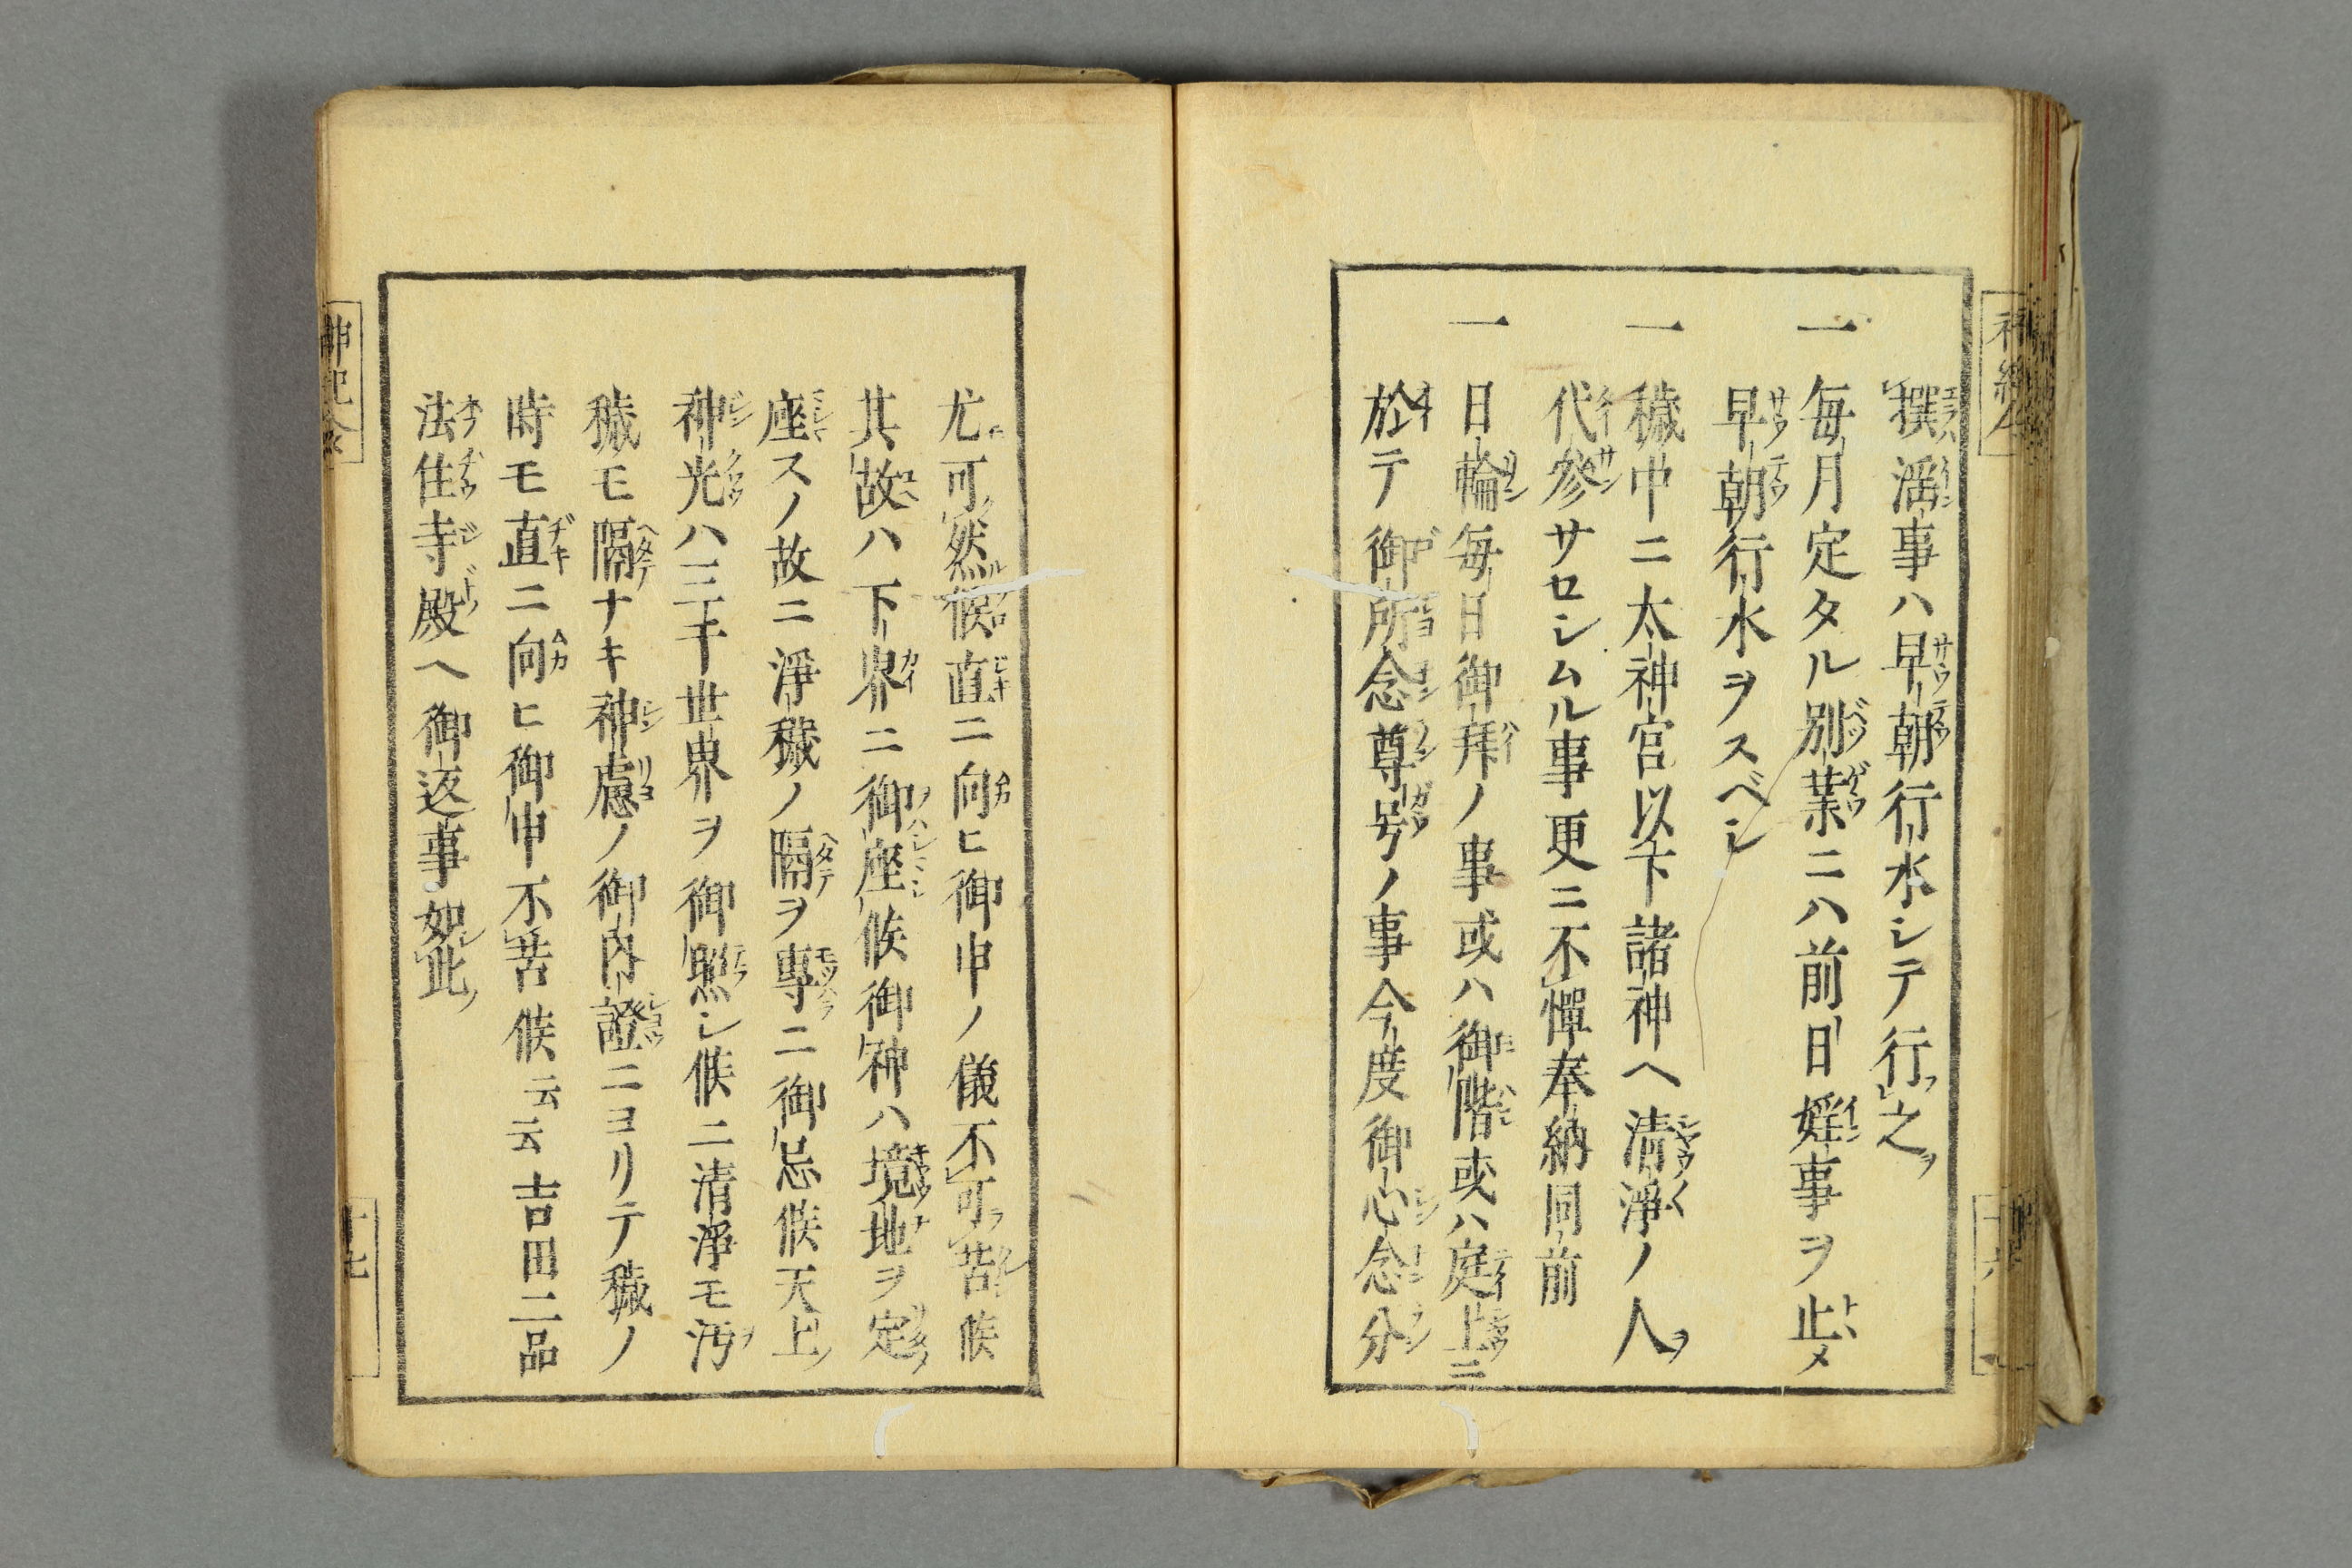 撰滛事ハ早朝行水シテ行之
一毎月定タル別業ニハ前日婬事ヲ止メ
早朝行水ヲスベシ
一穢中ニ太神宮以下諸神ヘ清淨ノ人
代參サセシムル事更ニ不憚奉納同前
一日輪毎日御拜ノ事或ハ御階或ハ庭上ニ
於テ御所念尊号ノ事今度御心念分
尤可然候直ニ向ヒ御申ノ儀不可苦候
其故ハ下界ニ御座候御神ハ境地ヲ定
座スノ故ニ淨穢ノ隔ヲ專ニ御忌候天上
神光ハ三千世界ヲ御照シ候ニ清淨モ汚
穢モ隔ナキ神慮ノ御内證ニヨリテ穢ノ
時モ直ニ向ヒ御申不苦候云云吉田二品
法住寺殿ヘ御返事如此
十七